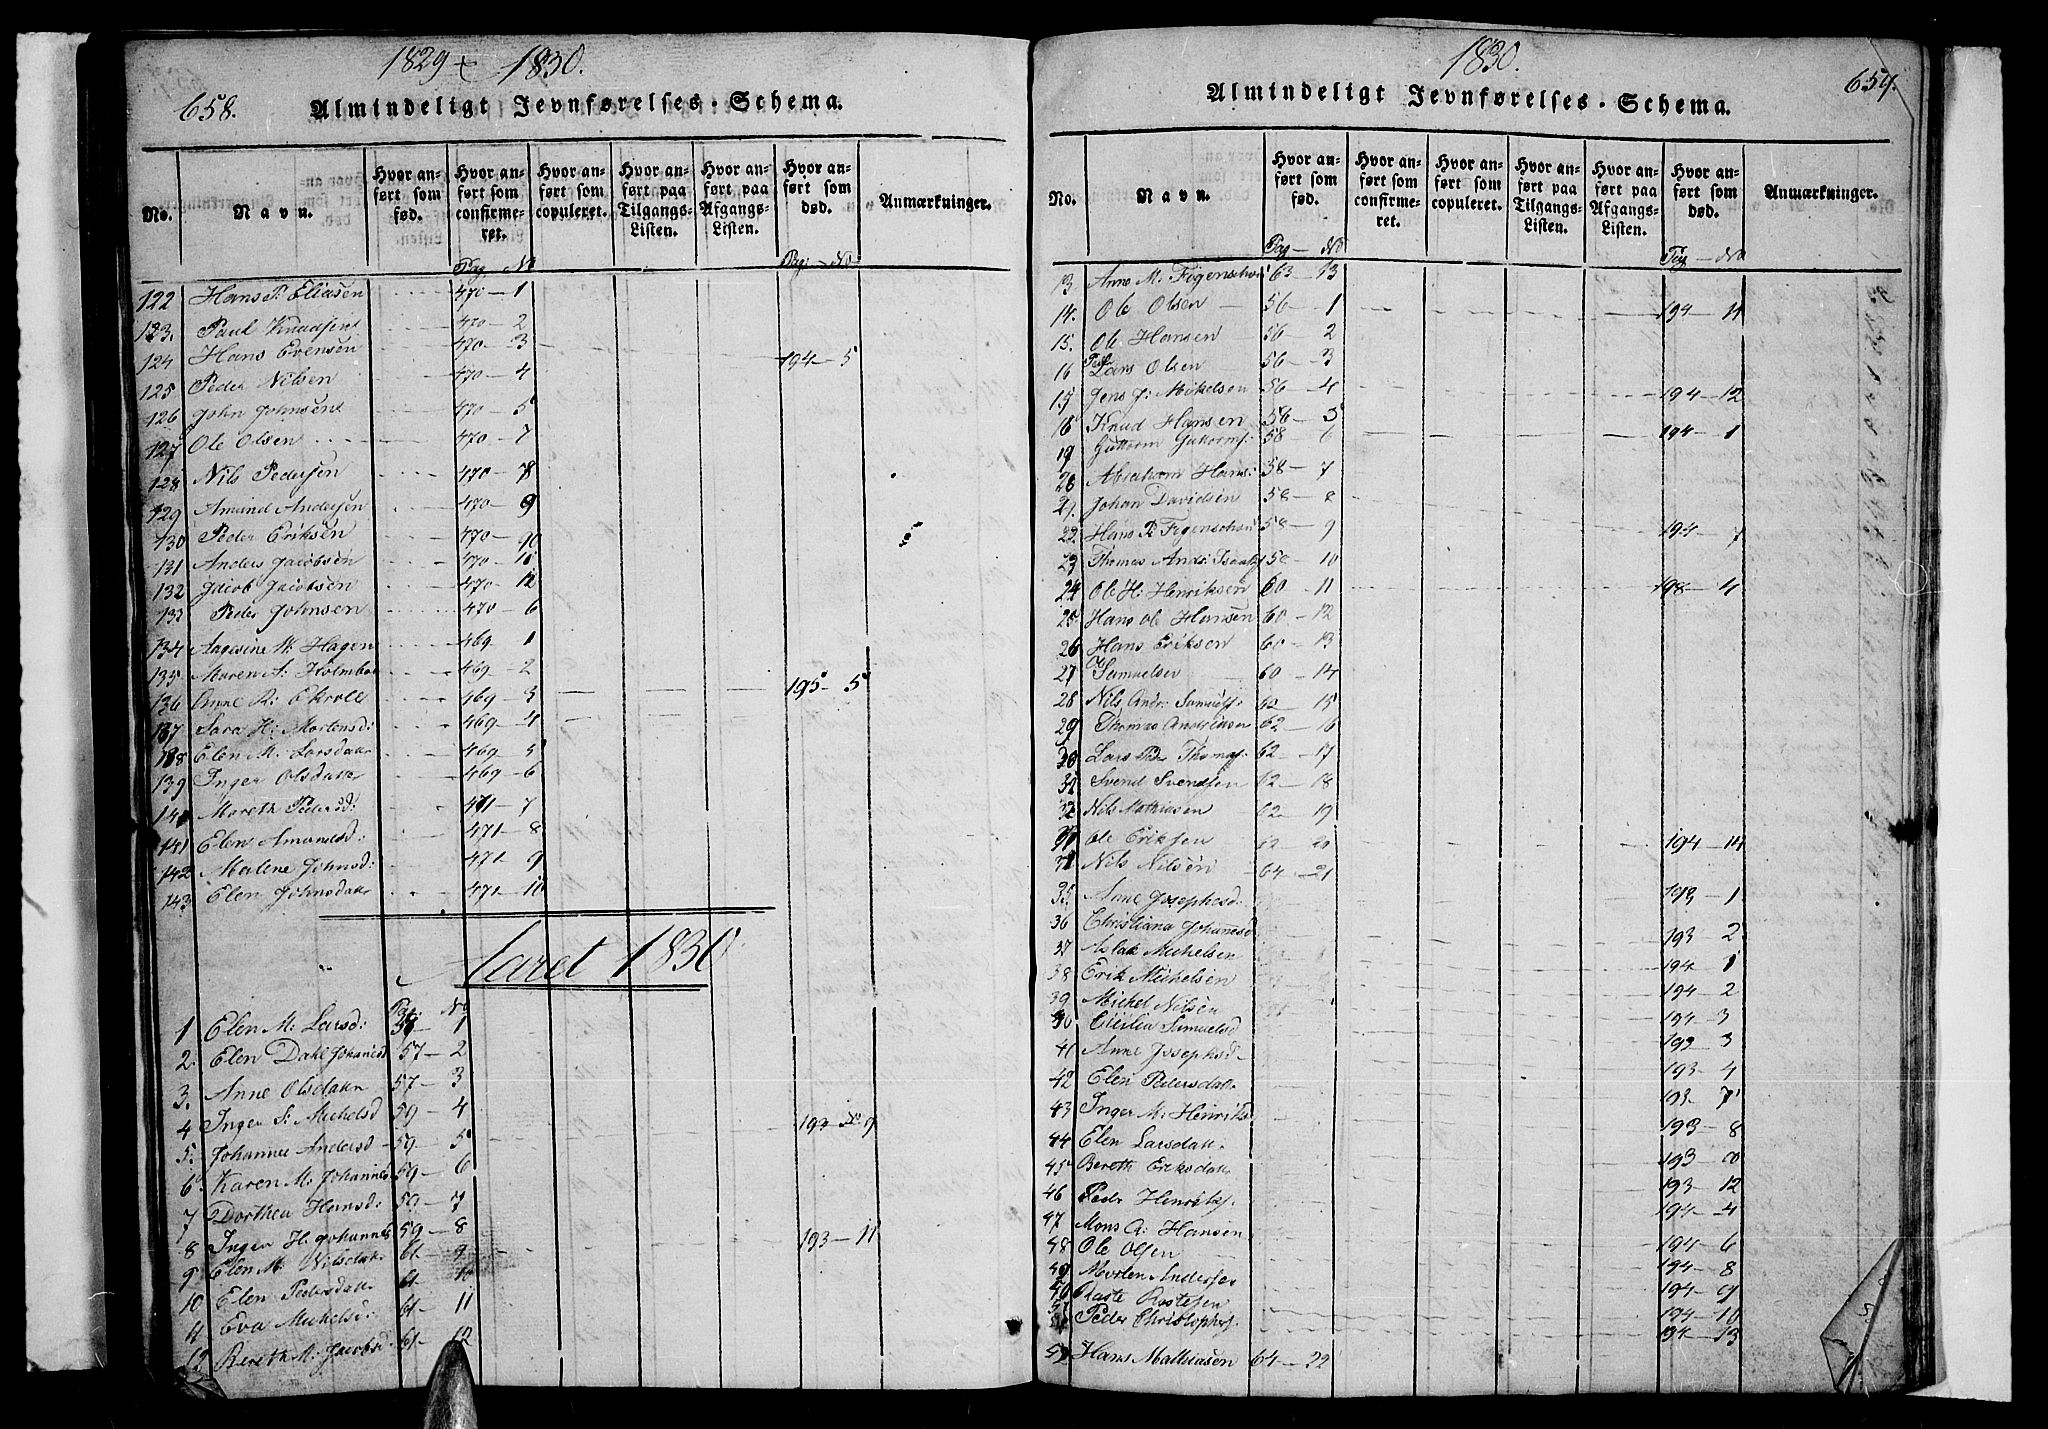 1829 + 1830.
658.
Almindeligt Jevnførelses-Schema.
No.
Navn.
Hvor anført som fød.
Hvor anført som confirmeret.
Hvor anført som copuleret.
Hvor anført paa Tilgangs-Listen.
Hvor anført paa Afgangs-Listen.
Hvor anført som død.
Anmærkninger.
Pag — No
Pag: — No
122 Hans P: Eliasen 470 — 1
123. Paul Knudsen 470 — 2
124 Hans Evensen 470 — 3 194 — 5
125 Peder Nilsen 470 — 4
126 John Johnsen 470 — 5
127 Ole Olsen 470 — 7
128 Nils Pedersen 470 — 8
129 Amund Andersen 470 — 9
130 Peder Eriksen 470 — 10
131 Anders Jacobsen 470 — 11
132 Jacob Jacobsen 470 — 12
133 Peder Johnsen 470 — 6
134 Aagesine M. Hagen 469 — 1
135 Maren A: Holmboe 469 — 2
136 Anne R: Ekroll 469 — 3 195 — 5
137 Sara H: Mortensd: 469 — 4
138 Elen M: Larsdatr 469 — 5
139 Inger Olsdatr 469 — 6
140 Mareth Pedersd: 471 — 7
141 Elen Amundsd: 471 — 8
142 Malene Johnsd: 471 — 9
143 Elen Johnsdatr 471 — 10
Aaret 1830
Pag: No
1 Elen M: Larsd: 57 — 1
2. Elen Dahl Johansd 57 — 2
3. Anne Olsdatr 57 — 3
4 Inger S: Michelsd 59 — 4 193 — 9
5. Johanne Andersd 59 — 5
6 Karen M: Johannesd 59 — 6
7 Dorthea Hansd: 59 — 7
8 Inger H. Johannesd 59 — 8 193 — 11
9 Elen M. Nilsdatr 61 — 9
10 Elen Pedersdatr 61 — 10
11 Eva Michelsd: 61 — 11
12 Bereth M: Jacobsd: 61 — 12
1830.
659.
Almindeligt Jevnførelses-Schema.
No.
Navn.
Hvor anført som fød.
Hvor anført som confirmeret.
Hvor anført som copuleret.
Hvor anført paa Tilgangs-Listen.
Hvor anført paa Afgangs-Listen.
Hvor anført som død.
Anmærkninger.
Pag — No
Pag — No
13 Anne M. Figenschou 63 — 13
14. Ole Olsen 56 — 1 194 — 11
15. Ole Hansen 56 — 2
16 Lars Olsen 56 — 3
Jens J: Mikelsen 56 — 4 194 — 12
Knud Hansen 58 — 5
19 Guttorm Guttorms: 58 — 6 194 — 1
20 Abraham Hans: 58 — 7
21. Johan Davidsen 58 — 8
22. Hans P. Figenschou 58 — 9 194 — 7
23 Thomas Andr: 58 — 10
24 Ole H: Henriksen 60 — 11 198 — 4
25 Hans Ole Hansen 60 — 12
26 Hans Eriksen 60 — 13
27 Samuelsen 60 — 14
28 Nils Andr: Samuels: 62 — 15
29 Thomas Andriasen 62 — 16
30 Lars Peder Thomas: 62 — 17
Svend Svendsen 62 — 18
32 Nils Mathiasen 62 — 19
Ole Eriksen 62 — 20 194 — 14
Nils Nilsen 64 — 21
35. Anne Josephsd. 193 — 1
36 Christiana Johanesd 193 — 2
37 Aslak Michelsen 194 — 1
38 Erik Michelsen 194 — 2
39 Michel Nilsen 194 — 3
40 Cicilia Samuelsd 193 — 3
41 Anne Josephsd. 193 — 4
42 Elen Pedersdatr. 193 — 7
43 Inger M: Henriks: 193 — 8
44 Elen Larsdatr.
45 Bereth Eriksdatr 193 — 12
46 Peder Henriks: 194 — 4
47 Mons A: Hansen
48 Ole Olsen 194 — 6
49 Morten Andersen 194 — 8
50 Raste Rastesen 194 — 9
Peder Christophers. 194 — 10
194 — 13
Hans Mathiasen 64 — 22